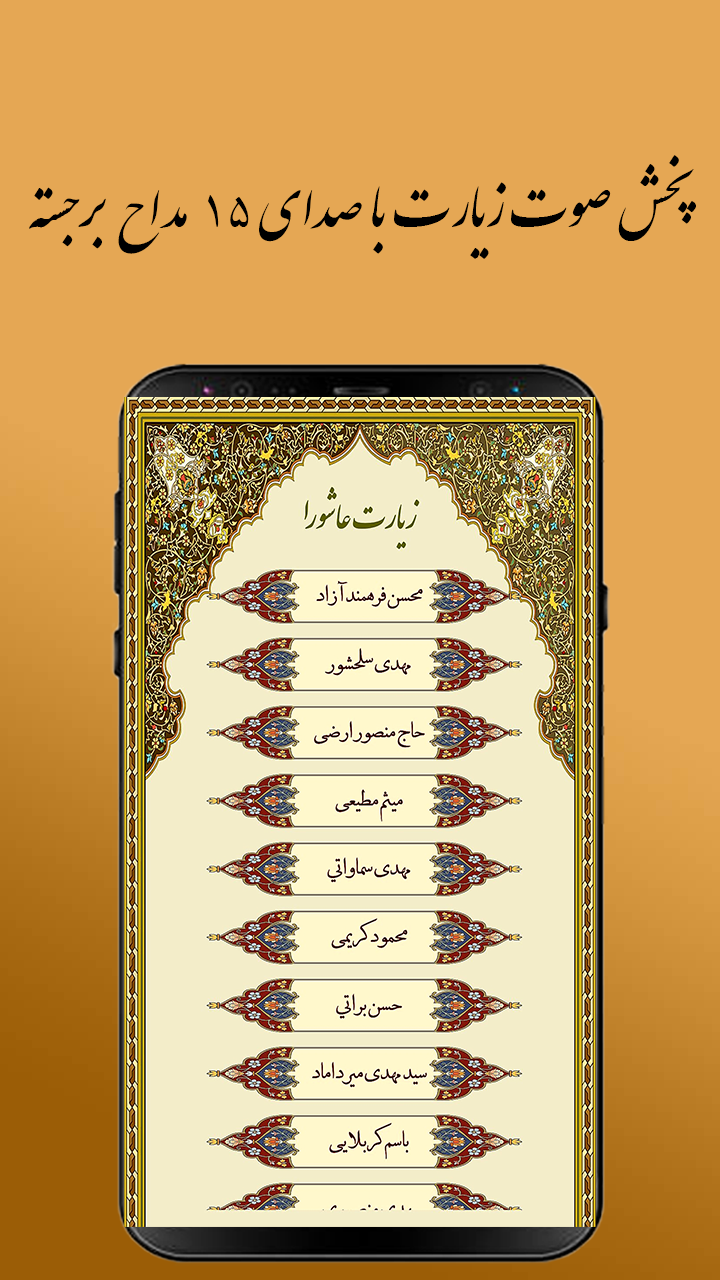 پخش صوت زیارت با صدای ۱۵ مداح برجسته
زیارت عاشورا
محسن فرهمند آزاد
مهدی سلحشور
حاج منصور ارضی
میثم مطیعی
مهدی سماواتي
محمود کریمی
حسن براتي
سید مهدی میرداماد
باسم کربلایی